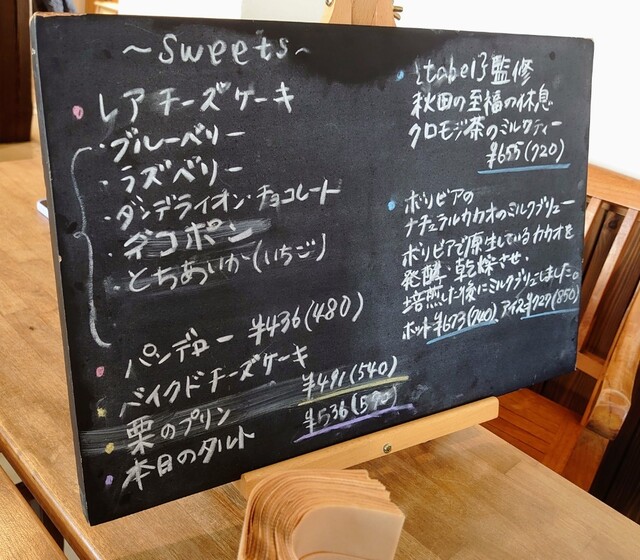 ~sweets~
レアチーズケーキ
・ブルーベリー
・ラズベリー
・ダンデライオン・チョコレート
・デコポン
・とちあいか(いちご)
パンデロー ¥436(480)
ベイクドチーズケーキ
栗のプリン ¥491(540)
本日のタルト ¥536(590)
{tabel}監修
秋田の至福の休息
クロモジ茶のミルクティー
¥655(720)
ボリビアの
ナチュラルカカオのミルクブリュー
ボリビアで原生しているカカオを
発酵・乾燥させ、
焙煎した後にミルクブリューしました。
ホット¥673(740) アイス¥727(850)